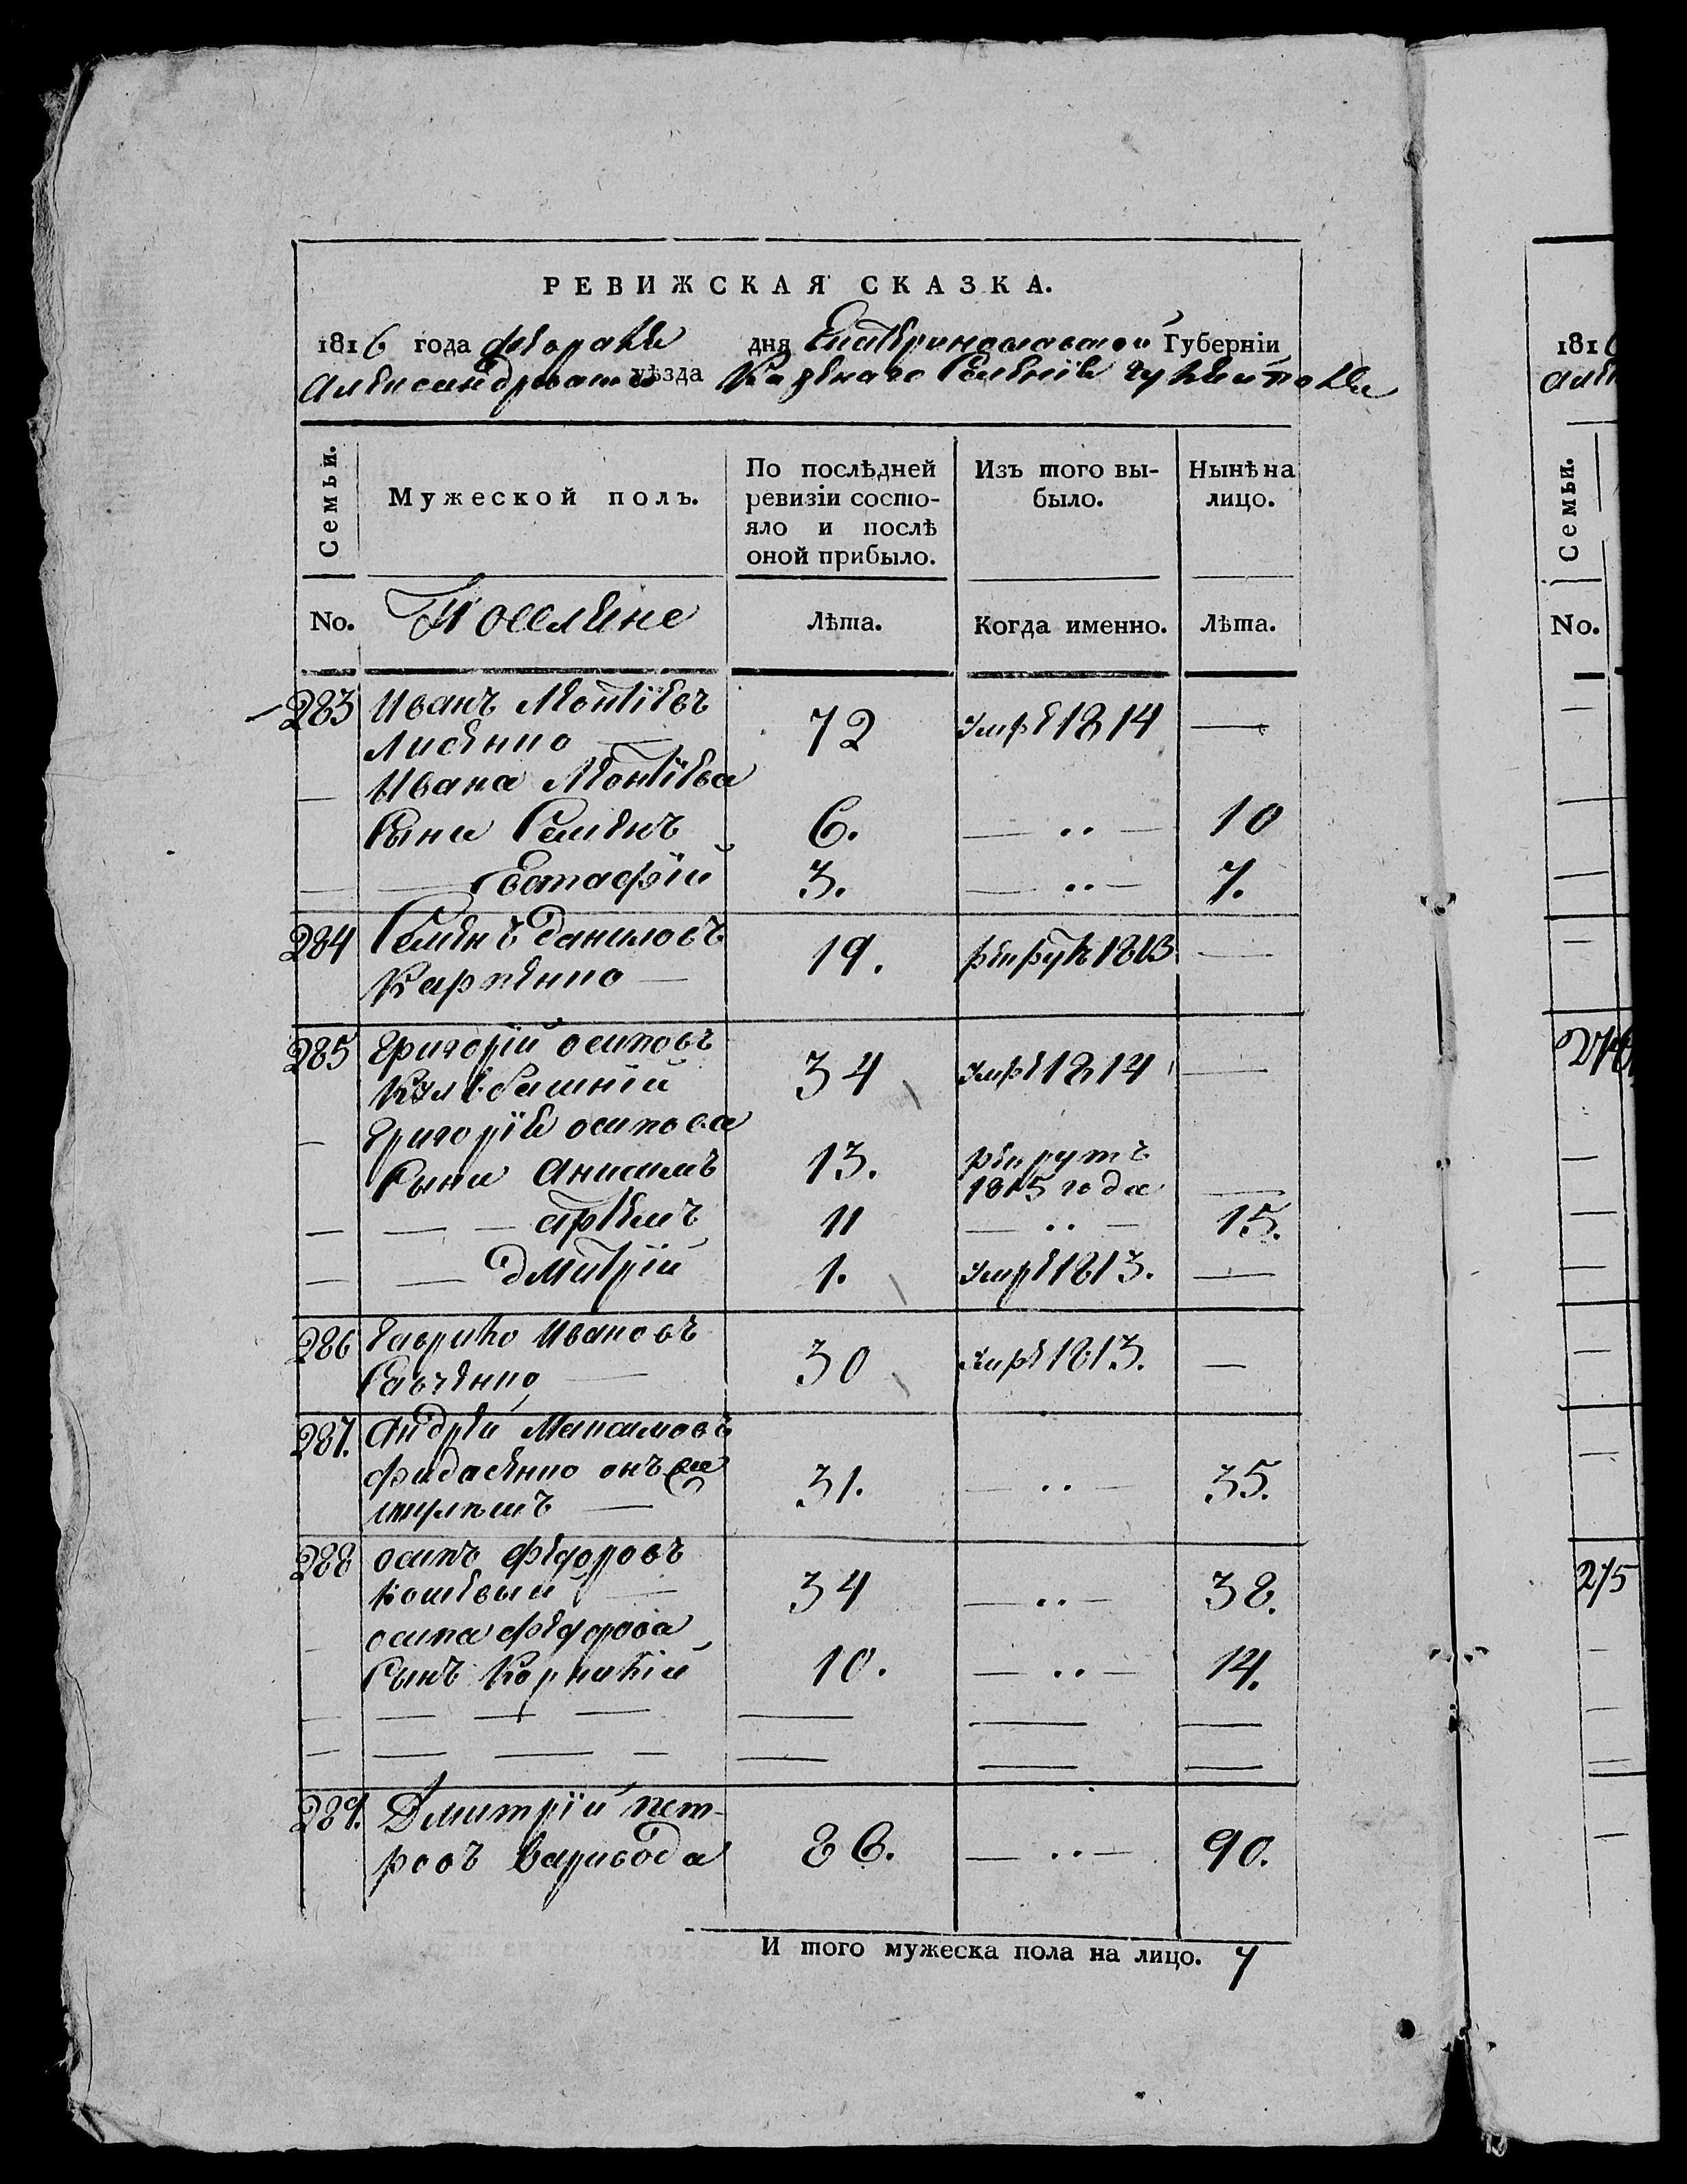 РЕВИЖСКАЯ СКАЗКА.
1816 года февраля дня Екатеринославской Губерніи
Александровского уѣзда Казенаго Селенія Гуляйполя
Семьи. Мужеской полъ. По послѣдней ревизіи состояло и послѣ оной прибыло. Изъ того выбыло. Нынѣ на лицо.
No. Поселяне Лѣта. Когда именно. Лѣта.
283 Иванъ Леонтіевъ
Лисенко — 72 умре 1814 —
— Ивана Леонтіева
Сыни Семенъ 6. — „ — 10
— — Евстафій 3. — „ — 7.
284 Семенъ Даниловъ
Карпенко — 19. рекрутъ 1813 —
285 Григорій осиповъ
34 умре 1814 —
— Григорія осипова
Сыни Анисимъ 13. рекрутъ
1815 года —
— — — артемъ 11 — „ — 15.
— — Дмитрій 1. умре 1813. —
286 Гаврило Ивановъ
Савченко — 30 умре 1813. —
287. Андрей Максимовъ
онъ же
31. — „ — 35.
288 осипъ Федоровъ
Кошевый — 34 — „ — 38.
— осипа Федорова
Сынъ Корнилій 10. — „ — 14.
289. Дмитрій Пет-
ровъ Варивода 86. — „ — 90.
И того мужеска пола на лицо. 7
1816
274
275
Семьи.
No.